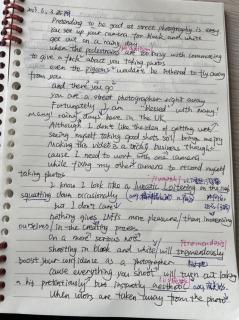 Pretending to be good at street photography is easy
You set up your camera for black and white
get out in a rainy day
when the pedestrians are too busy with commuting
to give a fuck about you taking photos
even the pigeons wouldn't be bothered to fly away
from you
and there you go
You are a street photographer right away
Fortunately I am "blessed" with many!
many! rainy days here in the UK
Although I don't like the idea of getting wet
Seeing myself taking good shots still brings me joy
Making this video is a tricky business though
cause I need to work with one camera
while fixing my other camera to record myself
taking photos
I know I look like a lunatic loitering through
squatting down occasionally
but I don't care
nothing gives INFJs more pleasure than immersing
ourselves in the creating process
On a more serious note
Shooting in black and white will tremendously
boost your confidence as a photographer
cause everything you shoot will turn out looking
a bit pretentiously but instantly aesthetic
When colors are taken away from the photo